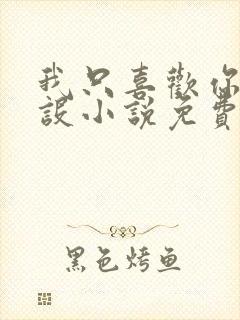 我只喜歡你
設小說免費
黑色烤鱼